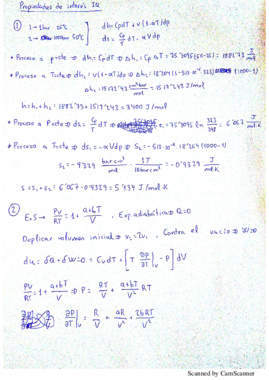 Propiedades de interés IQ
① 1 → 1 bar 25ºC
2 → 1000 bar 50ºC
dh = CpdT + v(1-αT)dp
ds = Cp/T dT - αVdp
• Proceso a p=cte ⇒ dh = CpdT ⇒ Δh₁ = Cp ΔT = 75'3095(50-25) = 1882'73 J/mol
• Proceso a T=cte ⇒ dh₂ = v(1-αT)dp ⇒ Δh₂ = 18'204(1-513·10⁻⁶·323)(1000-1)
Δh₂ = 15172'43 cm³bar/mol = 1517'243 J/mol
h = h₁+h₂ = 1882'73 + 1517'243 = 3400 J/mol
• Proceso a P=cte ⇒ ds₁ = Cp/T dT ⇒ = 75'3095 ln 323/298 = 6'067 J/mol·K
• Proceso a T=cte ⇒ ds₂ = -αVdp ⇒ S₂ = -513·10⁻⁶·18'204(1000-1)
S₂ = -9'329 bar cm³/mol·K · 1J/10bar cm³ = -0'9329 J/mol·K
S = S₁+S₂ = 6'067 - 0'9329 = 5'134 J/mol·K
② E₀S → PV/RT = 1 + (a+bT)/V , Exp adiabática ⇒ Q=0
Duplicar volumen inicial ⇒ V₂=2V₁ . Contra el vacío ⇒ W=0
du = δQ + δW = 0 = CvdT + [T ∂P/∂T|v - P] dV
PV/RT = 1 + (a+bT)/V ⇒ P = RT/V + (a+bT)/V² RT
∂P/∂T|v = R/V + aR/V² + 2bRT/V²
Scanned by CamScanner